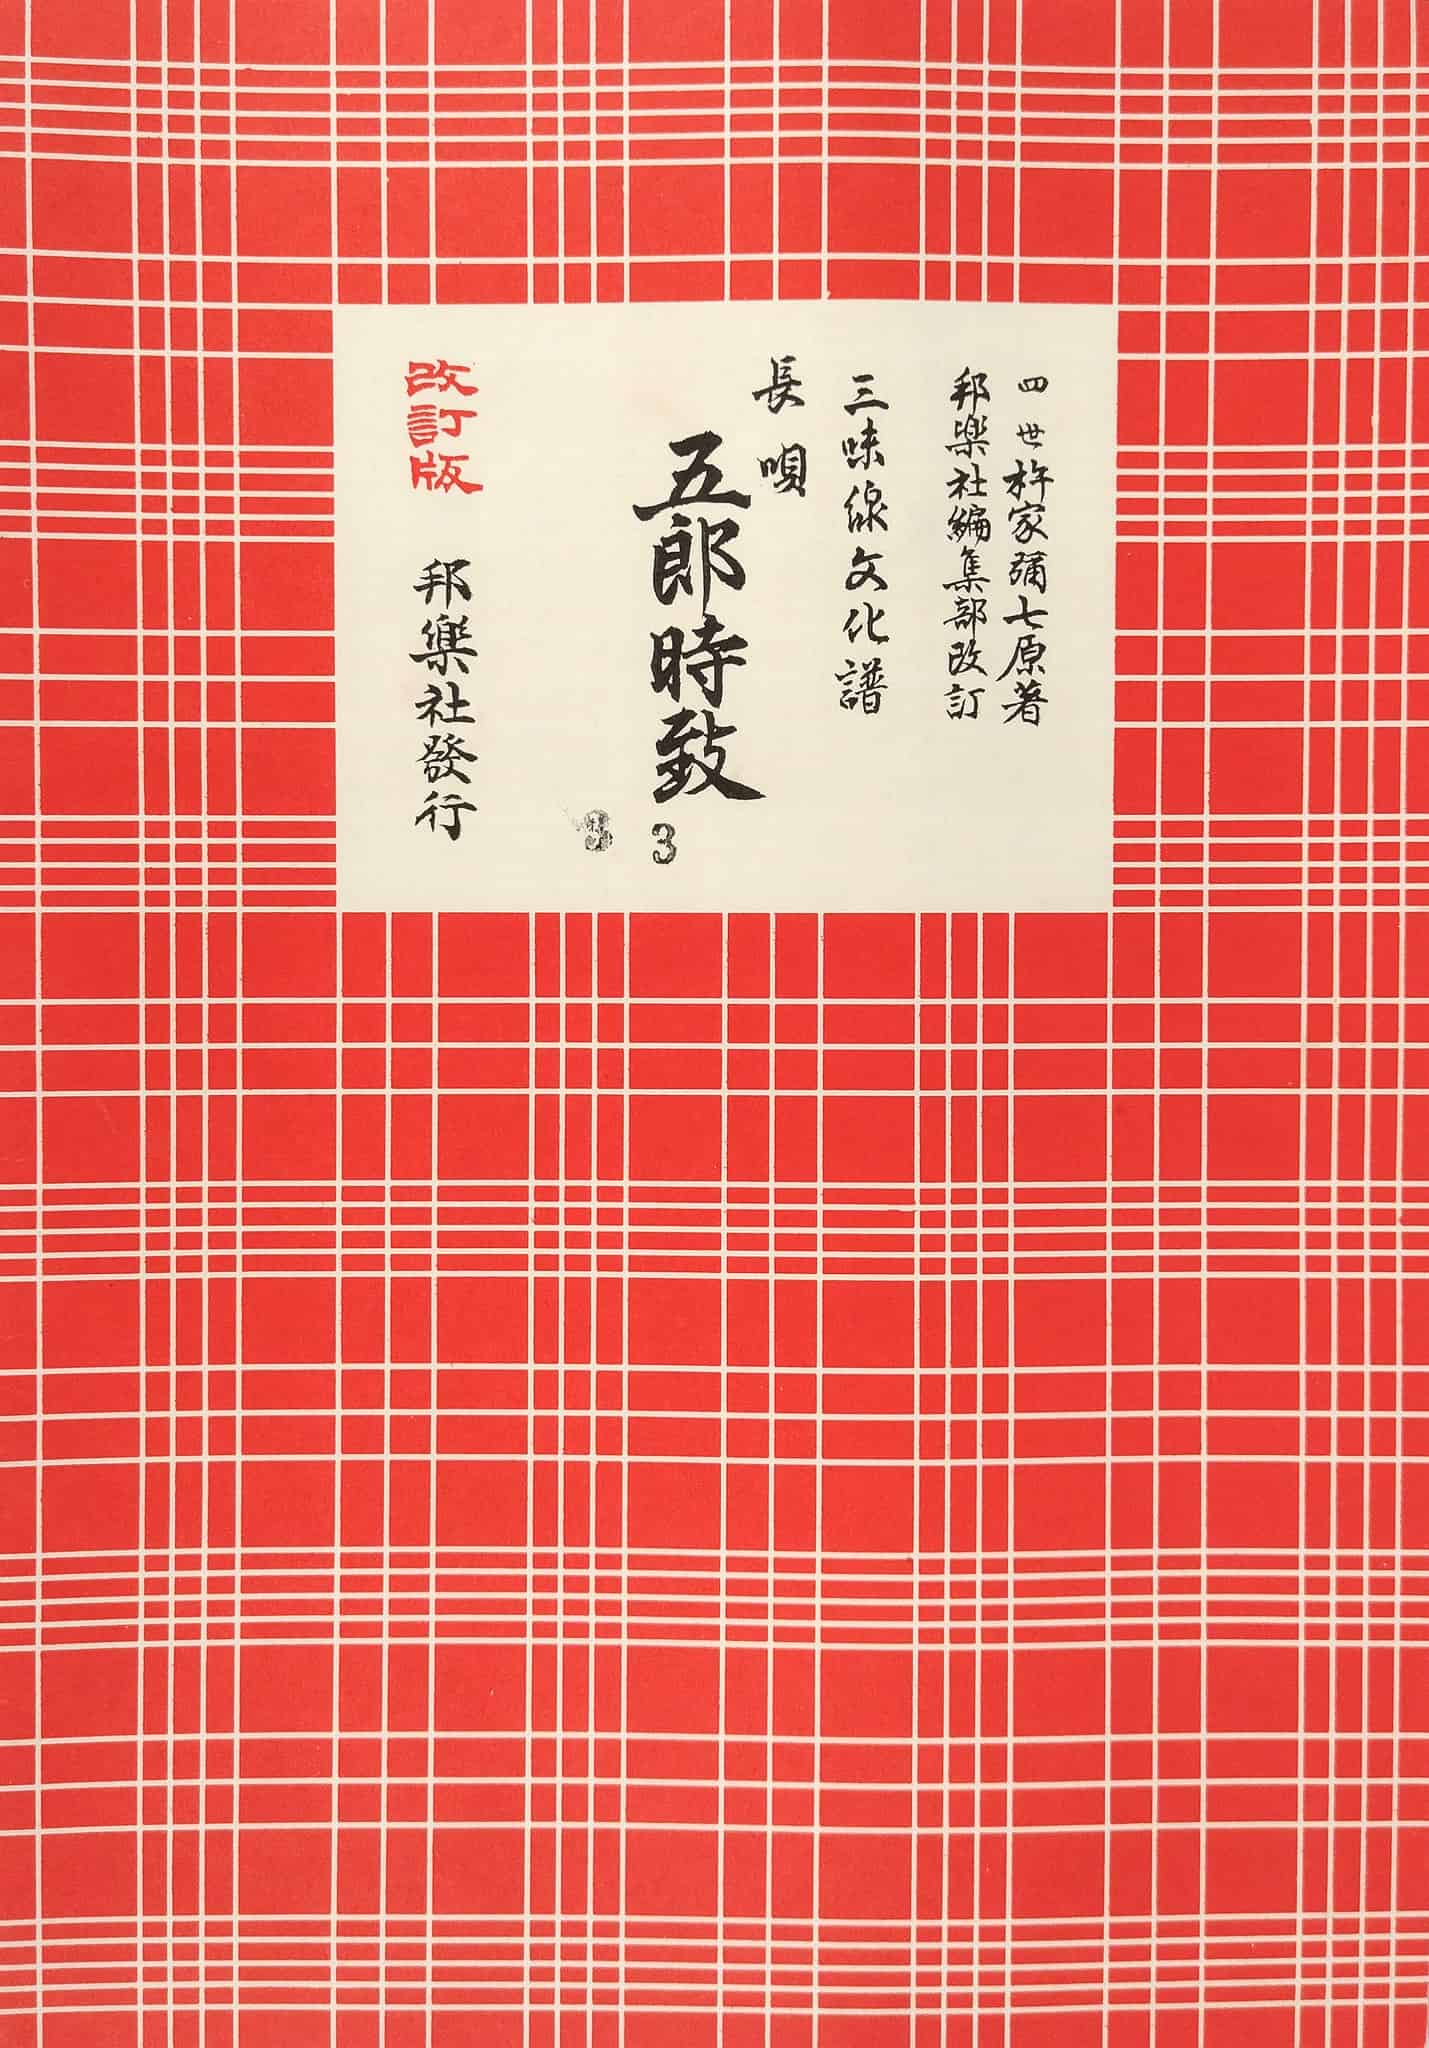 四世杵家彌七原著
邦楽社編集部改訂
三味線文化譜
長唄
五郎時致
3
3
改訂版
邦樂社發行